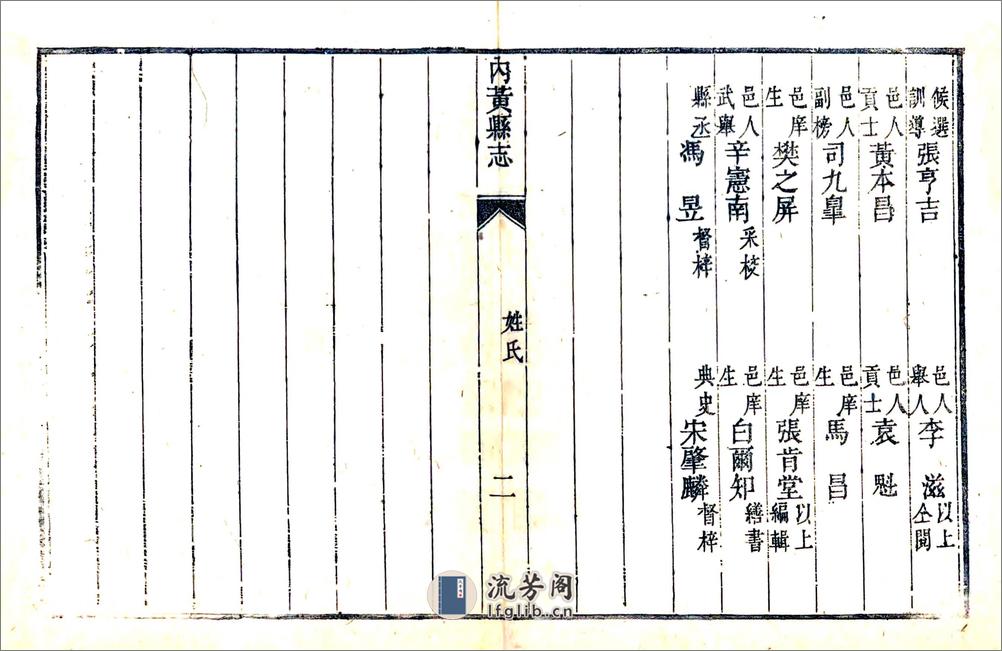 候選訓導張亨吉 邑人舉人李滋以上仝閱
邑人貢士黃本昌 邑人貢士袁魁
邑人副榜司九臯 邑庠生馬昌
邑庠生樊之屏 邑庠生張肯堂以上編輯
邑人武舉辛憲南采校 邑庠生白爾知繕書
縣丞馮昱督梓 典史宋肇麟督梓
內黃縣志 姓氏 二
流芳阁
lfglib.cn